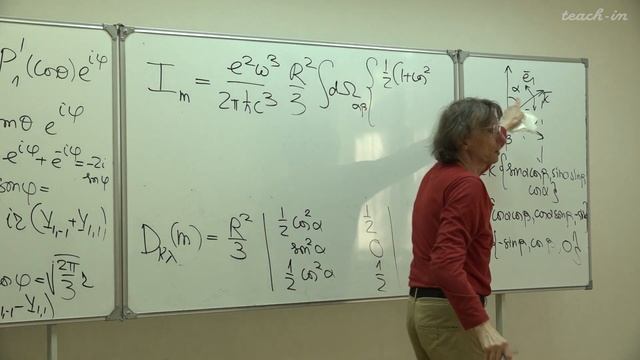 teach-in
P₁¹(cosθ)e^{iφ}
mθ e^{iφ}
e^{iφ} + e^{-iφ} = -2i
sinφ
sinφ =
i2(Y_{1,-1} + Y_{1,1})
cosφ = √(2π/3) 2
Y_{1,-1} - Y_{1,1})
I_m = e²ω³/2πħc³ R²/3 ∫dΩ_{αβ} { 1/2(1+cos²
D_{kλ}(m) = R²/3 | 1/2 cos²α 1/2 |
sin²α 0
1/2 cos²α 1/2
α ē₁ k̄
{sinα cosβ, sinα sinβ,
cosα}
cosα cosβ, cosα sinβ, -sinα
{-sinβ, cosβ, 0}